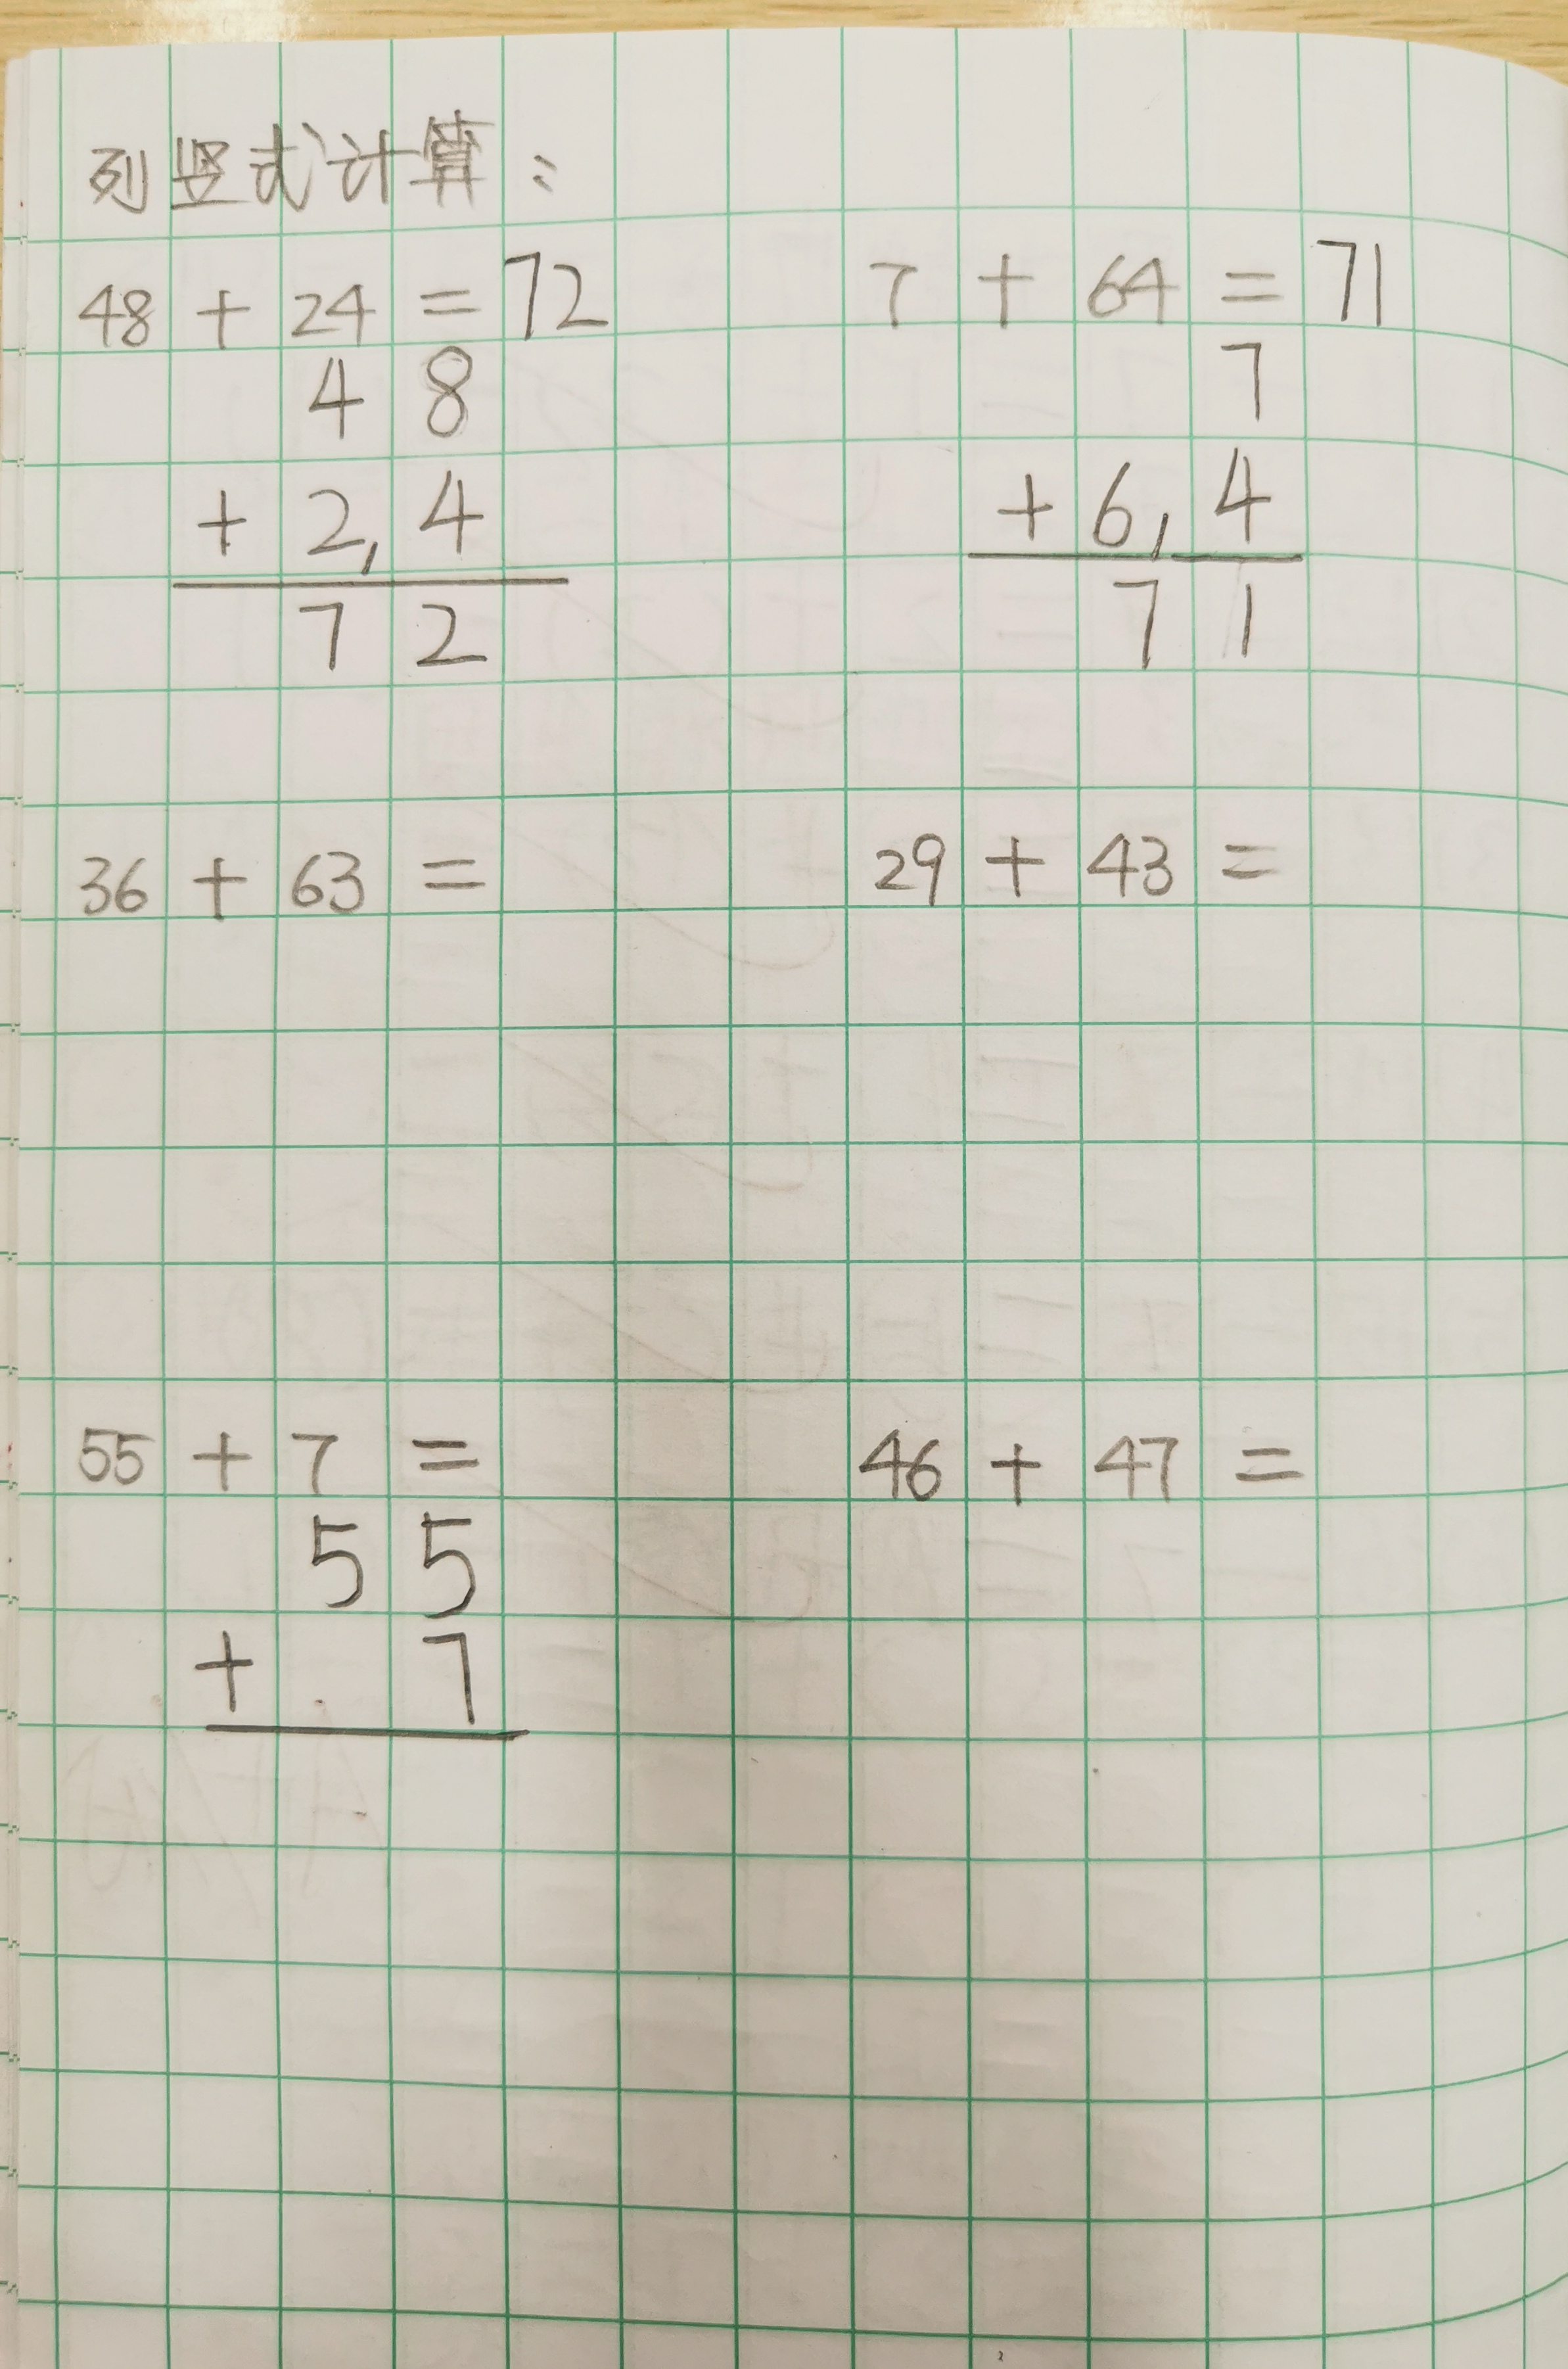 列竖式计算:
48 + 24 = 72
4 8
+ 2, 4
7 2
7 + 64 = 71
7
+ 6, 4
7 1
36 + 63 =
29 + 43 =
55 + 7 =
5 5
+ 7
46 + 47 =